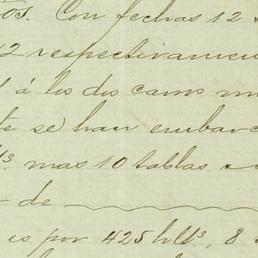 os. Con fechas 12
12 respectivamen
á los dos carros m
te se han embarc
mas 10 tablas
de
es por 425 blts, 8